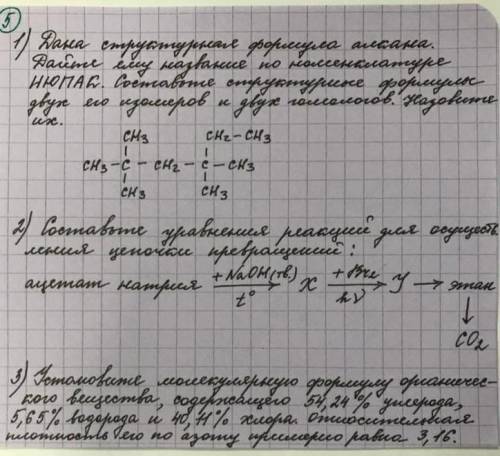 5
1) Дана структурная формула алкана.
Дайте ему название по номенклатуре
ИЮПАК. Составьте структурные формулы
двух его изомеров и двух гомологов. Назовите
их.
CH3 CH2-CH3
CH3-C-CH2-C-CH3
CH3 CH3
2) Составьте уравнения реакций для осущест
вления цепочки превращений:
ацетат натрия +NaOH(тв.) t° → X +Br2 hν → У → этан
↓
CO2
3) Установите молекулярную формулу органичес-
кого вещества, содержащего 54,24% углерода,
5,65% водорода и 40,11% хлора. Относительная
плотность его по азоту примерно равна 3,16.